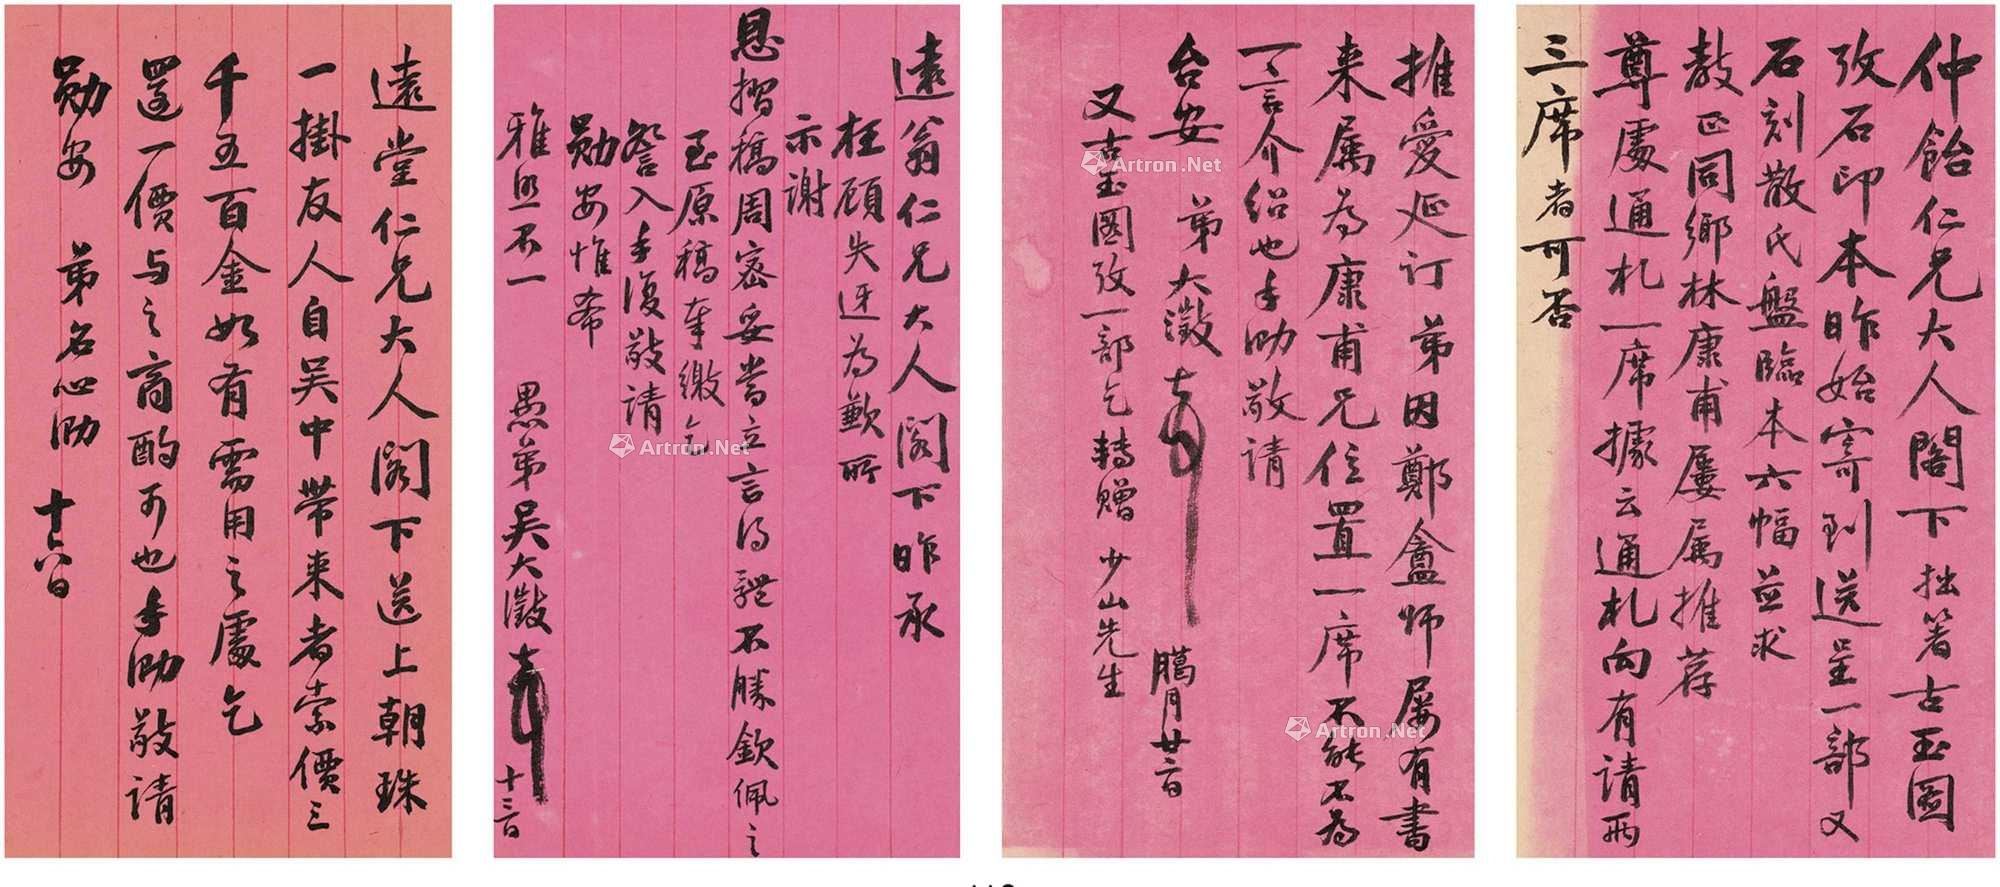 仲飴仁兄大人閣下拙箸古玉圖
攷石印本昨始寄到送呈一部又
石刻散氏盤臨本六幅並求
教正同鄉林康甫屢属推荐
尊處通札一席據云通札向有請兩
三席者可否
推愛延訂弟因鄭盦師屢有書
来属為康甫兄位置一席不能不為
一言介紹也手泐敬請
台安 弟大澂 
臈月廿二日
又古玉圖攷一部乞轉贈 少山先生
遠翁仁兄大人閣下昨承
枉顧失迓為歉所
示謝
恩摺稿周密妥當立言得體不勝欽佩之
至原稿奉繳乞
詧入手復敬請
勛安惟希
雅照不一
愚弟吴大澂
十三日
遠堂仁兄大人閣下送上朝珠
一掛友人自吴中带来者索價三
千五百金如有需用之處乞
還一價与之商酌可也手泐敬請
勛安 弟名心泐 十八日
Artron.Net
Artron.Net
Artron.Net